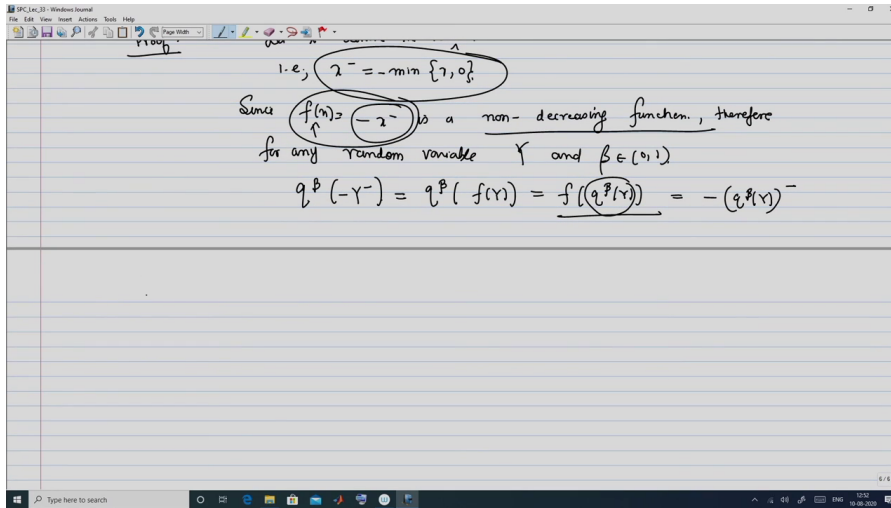 SPC_Lec_33 - Windows Journal
File Edit View Insert Actions Tools Help
Page Width
Proof
i.e; x⁻ = - min {x, 0}.
Since f(x) = - x⁻ is a non-decreasing function., therefore
for any random variable Y and β ∈ (0, 1)
q^β (-Y⁻) = q^β ( f(Y)) = f(q^β(Y)) = - (q^β(Y))⁻
6 / 6
Type here to search
ENG
12:52
10-08-2020